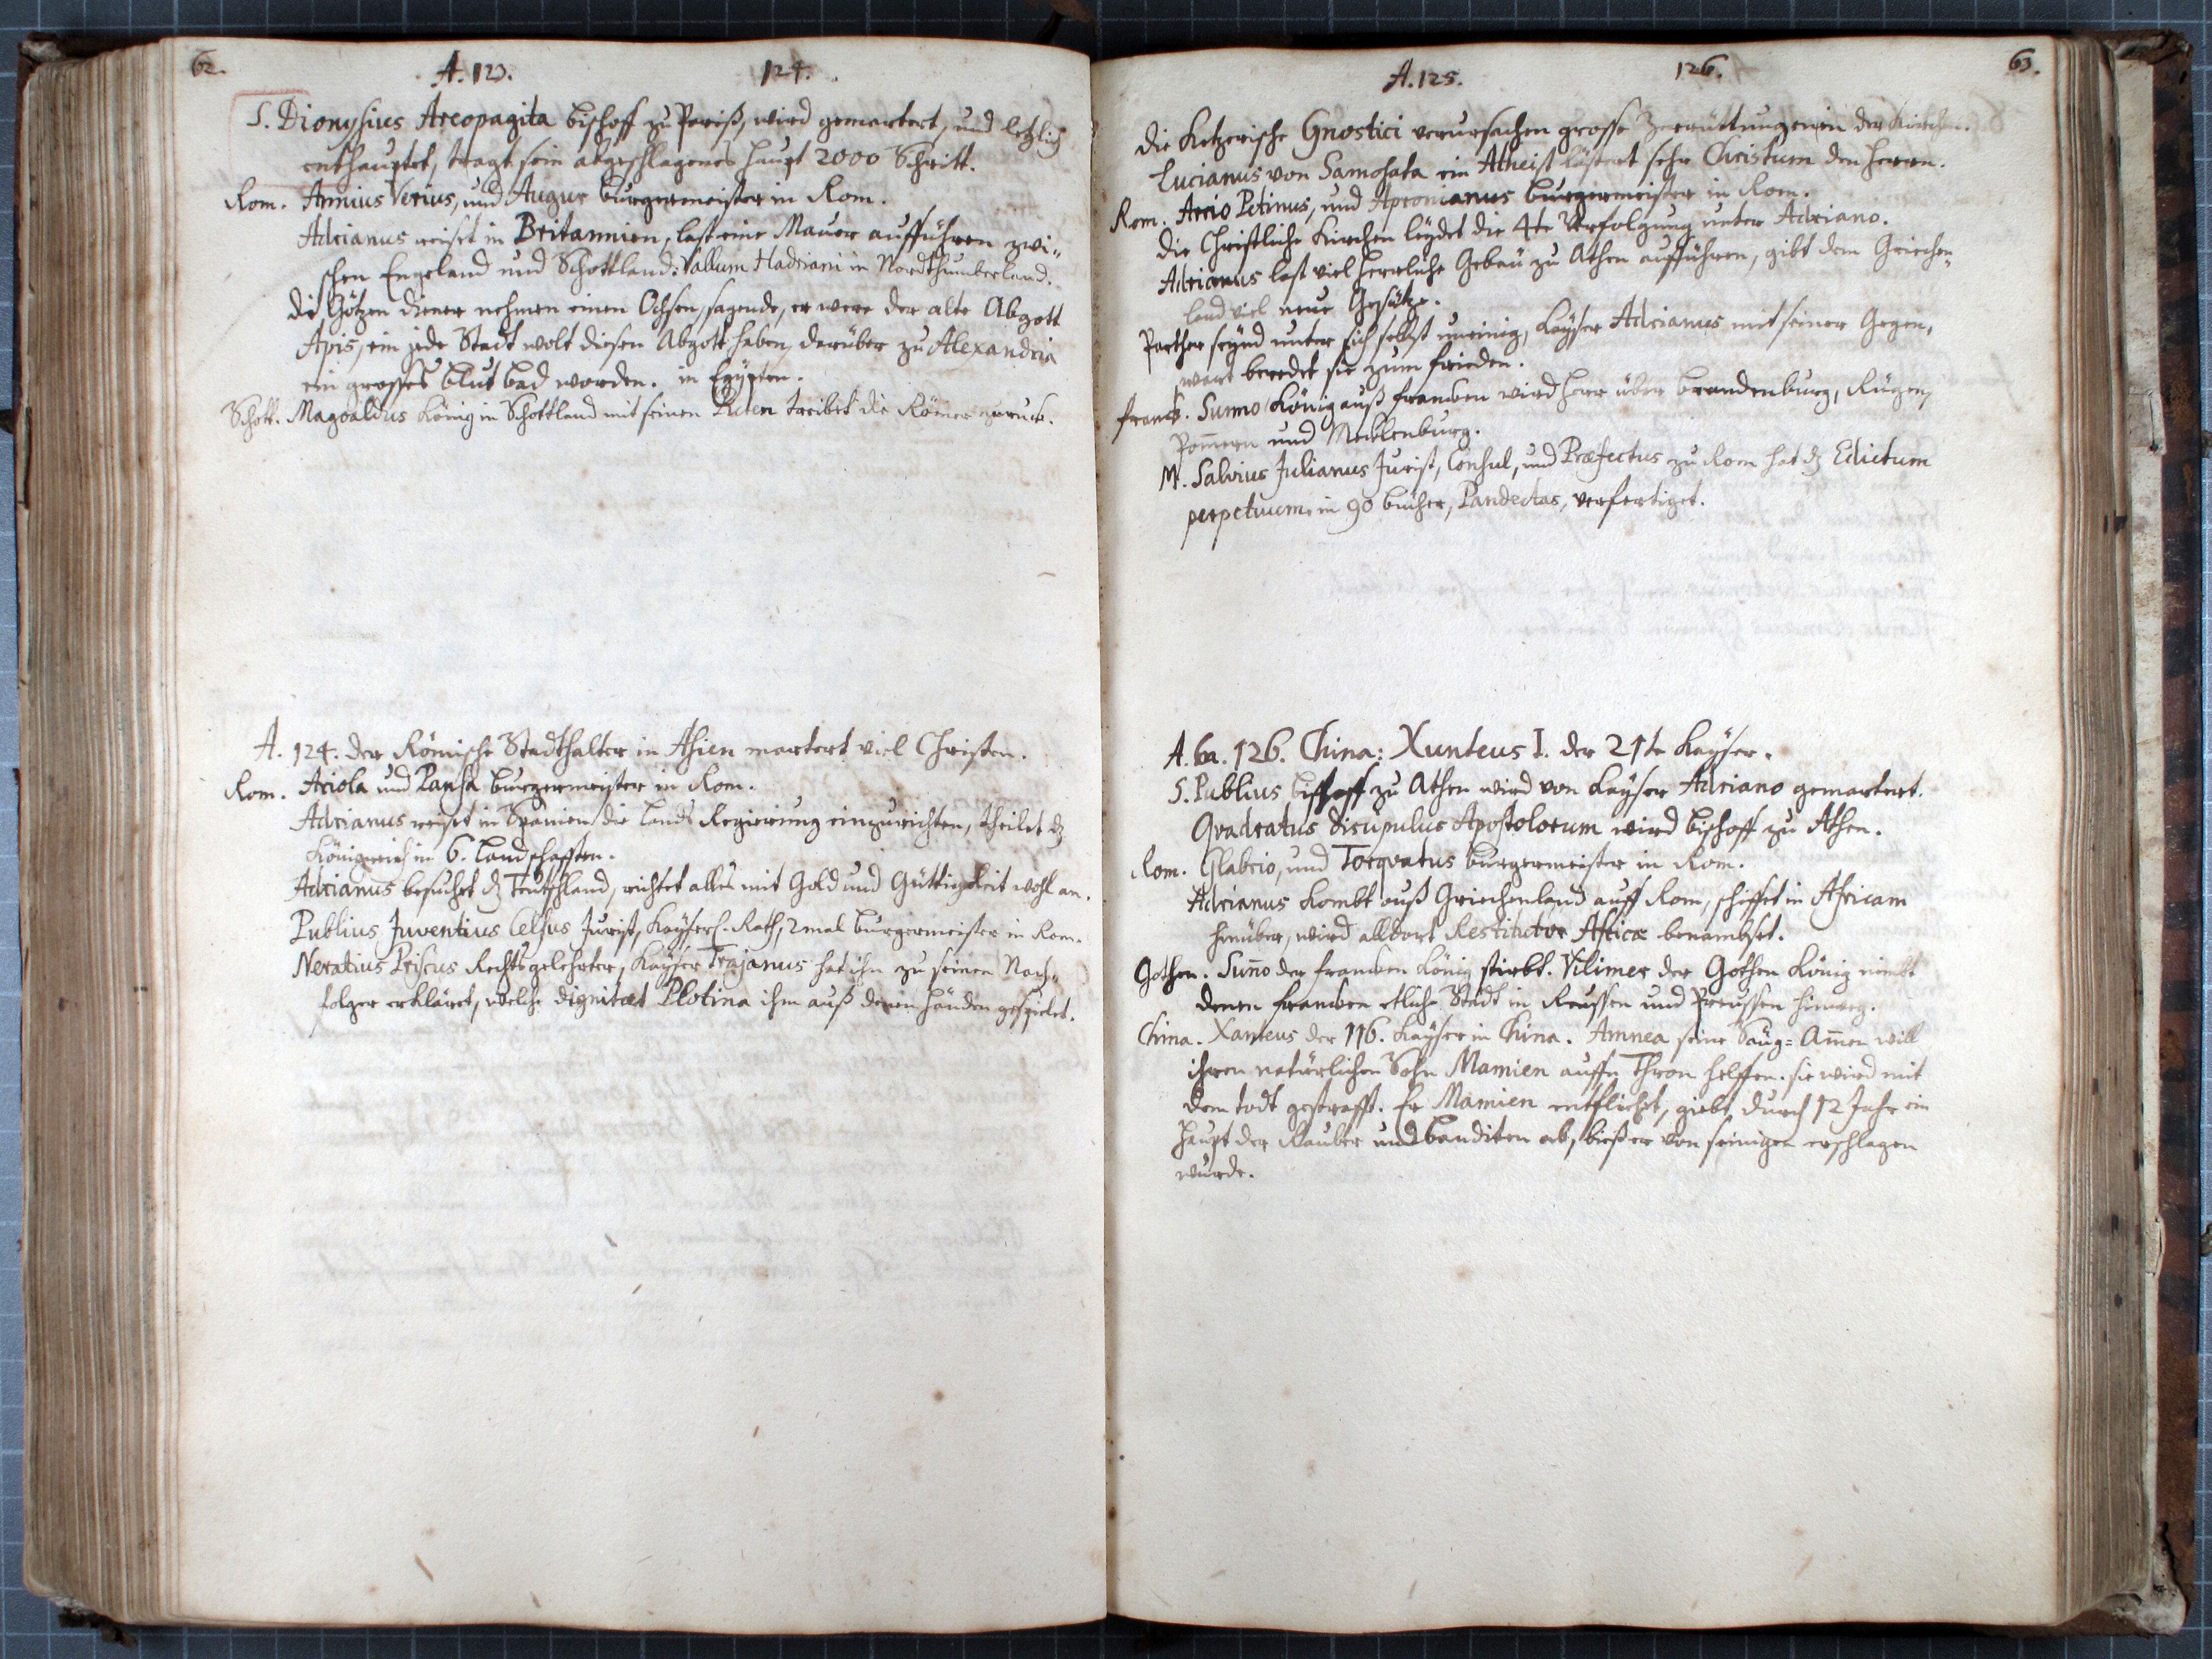 62.
A. 123.
124.
S. Dionysius Areopagita bischoff zu Pariß, wird gemartert, und letzlich
enthauptet, tragt sein abgeschlagenes haupt 2000 Schritt.
Rom. Annius Verius, und Augur burgermeister in Rom.
Adrianus reiset in Britannien, last eine Mauer aufführen zwi„
schen Engeland und Schottland: Vallum Hadriani in Nordthumberland.
die Götzen diener nehmen einen Ochsen, sagende, er were der alte Abgott
Apis, ein jede Stadt wolt diesen Abgott haben, darüber zu Alexandria
ein grosses blut bad worden. in Egypten.
Schott. Magoaldus König in Schottland mit seinen Picten treibet die Römer zuruck.
A. 124. der Römische Stadthalter in Asien martert viel Christen.
Rom. Aciola und Pansa burgermeister in Rom.
Adrianus reiset in Spanien die Lands Regierung einzurichten, theilet dz
Königreich in 6. Landschafften.
Adrianus besuchet dz Teutschland, richtet alles mit Gold und Güttigkeit wohl an.
Publius Juventius Celsus Jurist, Kayserl. Rath, 2mal burgermeister in Rom.
Neratius Priscus Rechtsgelehrter, Kayser Trajanus hat ihn zu seinen Nach„
folger erkläret, welche dignitæt Plotina ihm auß denen händen gespielet.
63.
A. 125.
126.
die Ketzerische Gnostici verursachen grosse Zerrüttungen in der Kirchen.
Lucianus von Samosata ein Atheist lästert sehr Christum den herren.
Rom. Arcio Petinus, und Apronianus burgermeister in Rom.
die Christliche Kirchen leydet die 4te Verfolgung unter Adriano.
Adrianus last viel herrliche Gebäu zu Athen aufführen, gibt dem Griechen„
land viel neue Gesätze.
Parther seynd unter sich selbst uneinig, Kayser Adrianus mit seiner Gegen„
wart beredet sie zum frieden.
franck. Sunno König auß francken wird herr über brandenburg, Rügen,
Pom̅ern und Mecklenburg.
M. Salvius Julianus Jurist, Consul, und Præfectus zu Rom hat dz Edictum
perpetuum, in 90 bücher, Pandectas, verfertiget.
A. 126. China: Xunteus I. der 21te Kayser.
S. Publius bischoff zu Athen wird von Kayser Adriano gemartert.
Qvadratus discipulus Apostolorum wird bischoff zu Athen.
Rom. Glabrio, und Torqvatus burgermeister in Rom.
Adrianus kombt auß Griechenland auff Rom, schiffet in Africam
hinüber, wird alldort Restitutor Africæ benambset.
Gothen. Sun̅o der francken König stirbt. Vilimer der Gothen König nimbt
denen francken etliche Städt in Reussen und Preussen hinweg.
China. Xanteus der 116. Kayser in China. Amnea seine Säug=Am̅en will
ihren natürlichen Sohn Mamien auffn Thron helffen. sie wird mit
dem todt gestrafft. Er Mamien entfliehet, giebt durch 12 Jahr ein
haupt der Rauber und banditen ab, biß er von seinigen erschlagen
wurde.